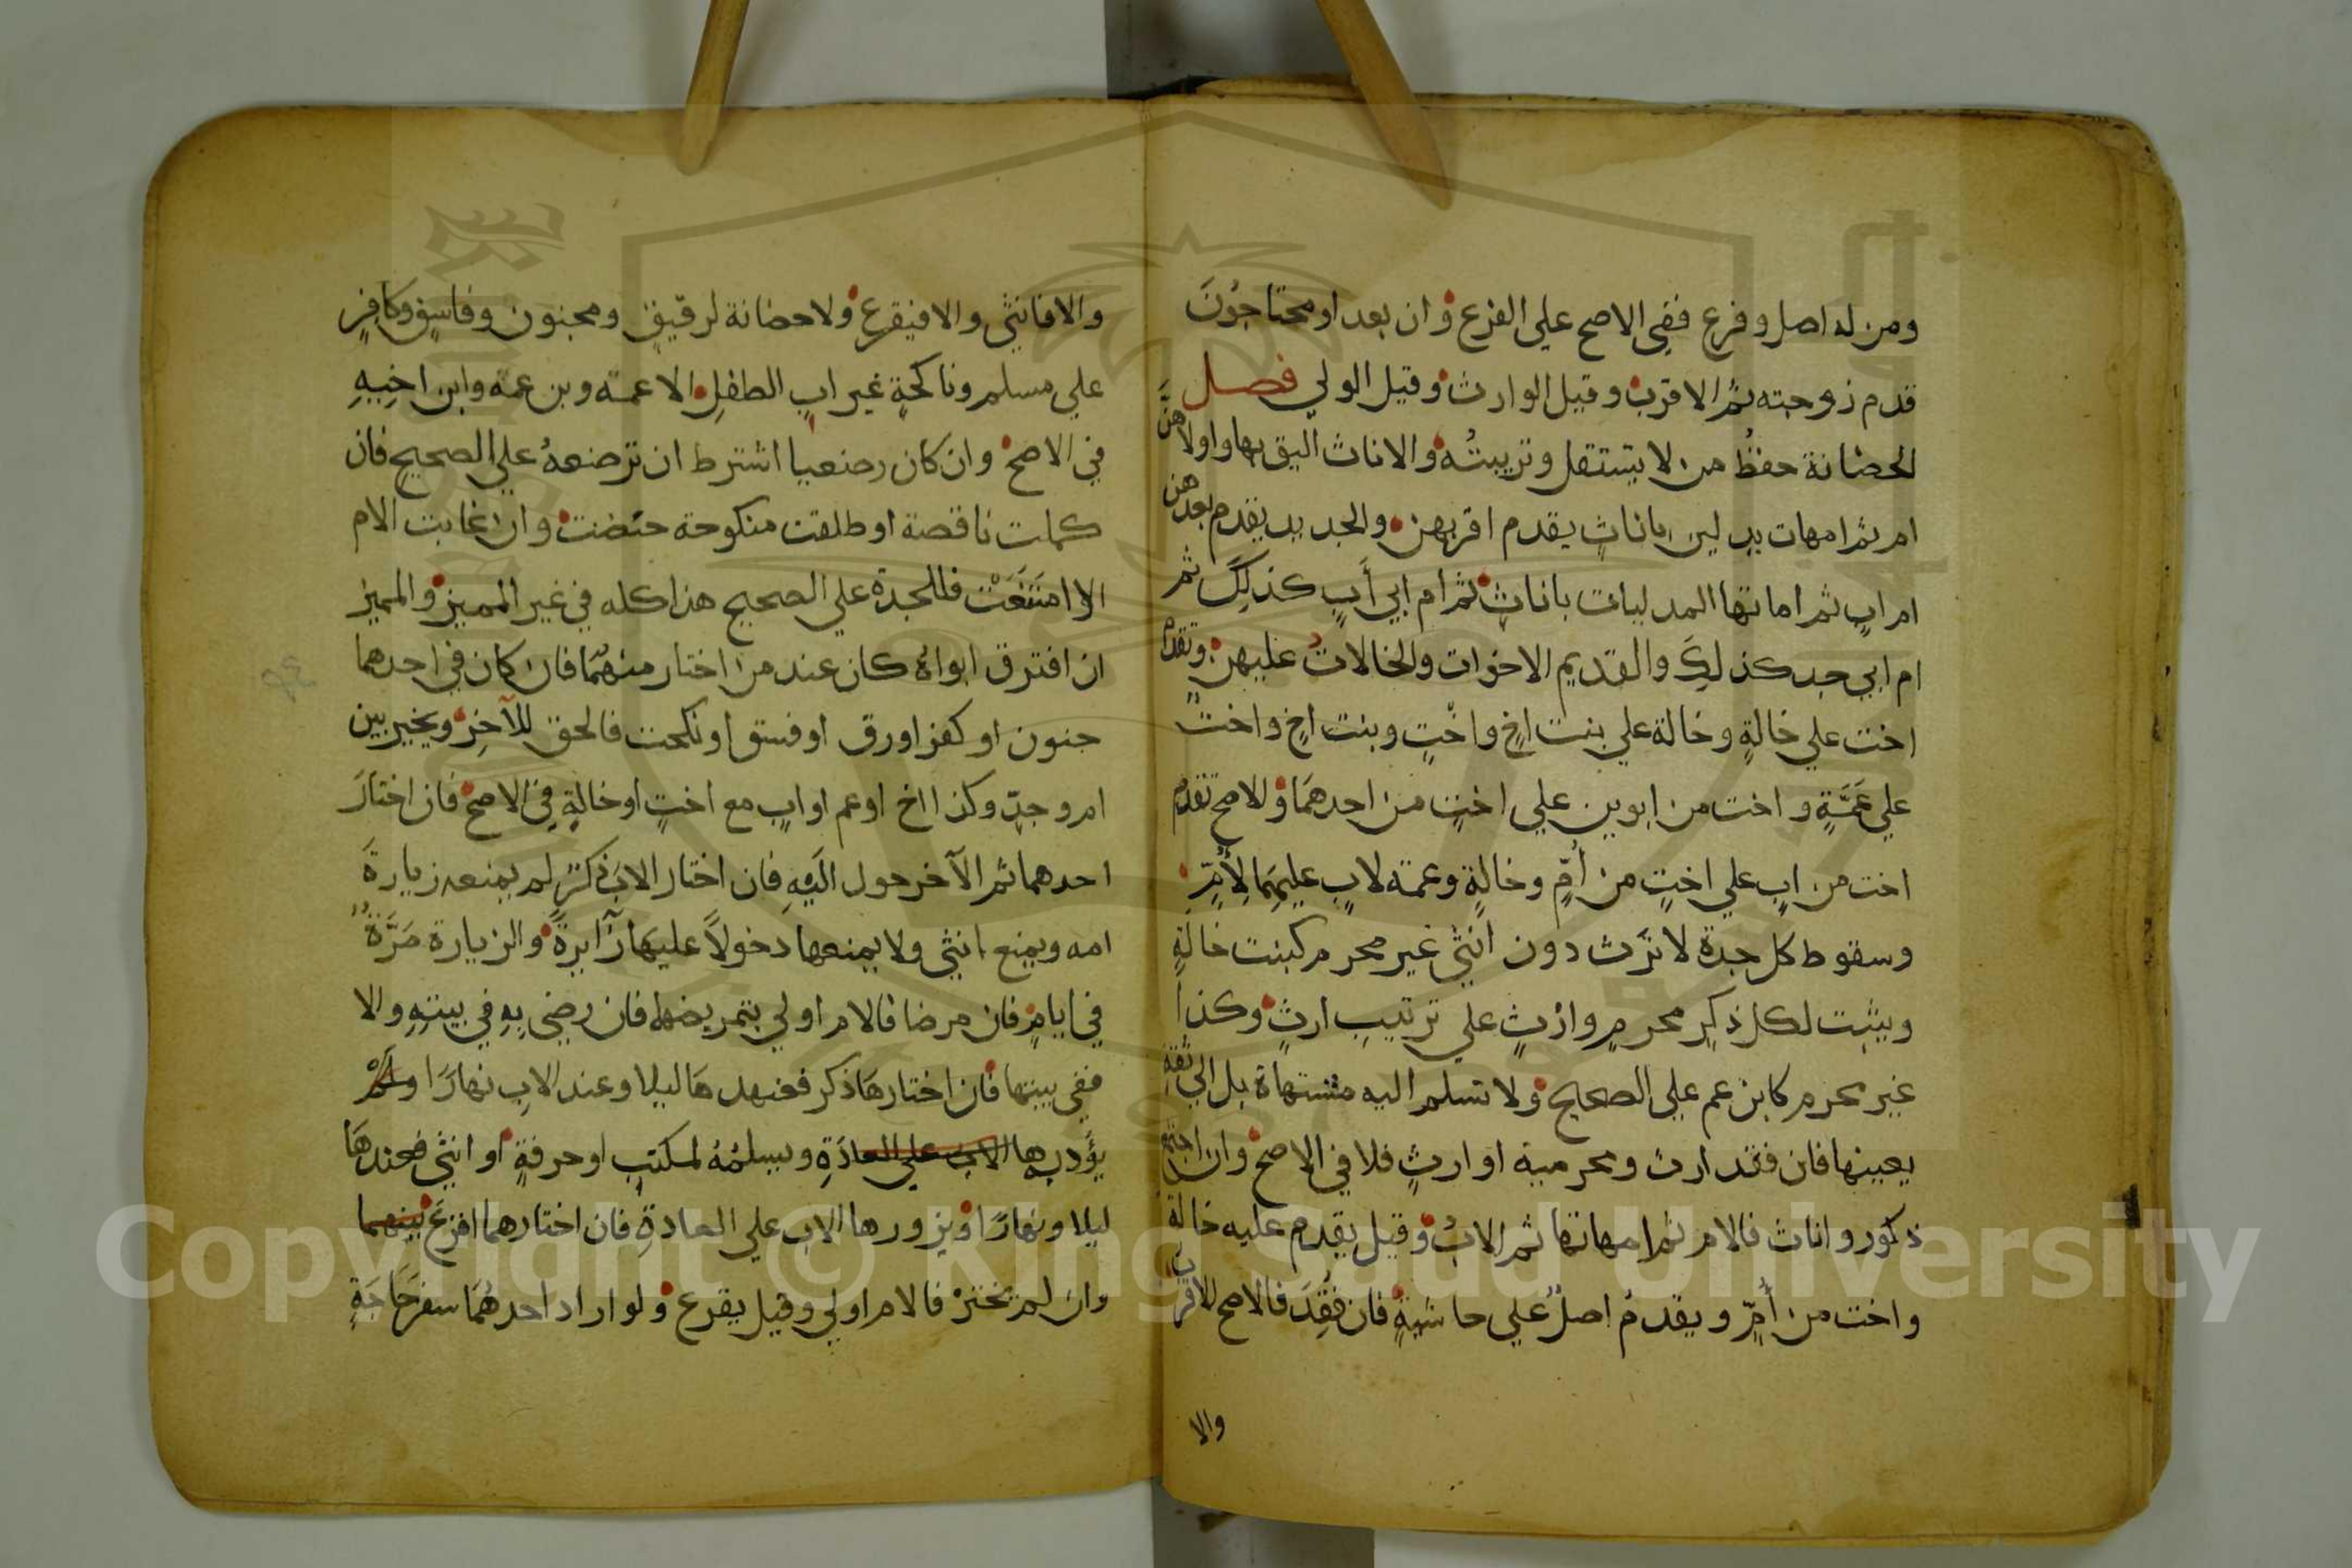 ومن له اصل وفرع ففي الاصح علي الفرع وان بعد او محتاجون
قدم زوجته ثم الاقرب وقيل الوارث وقيل الولي فصل
الحضانة حفظ من لا يستقل وتربيته والاناث اليق بها واولاهن
ام ثم امهات يدلين باناث يقدم اقربهن والجديد يقدم بعدهن
ام اب ثم امهاتها المدليات باناث ثم ام ابي أب كذلك ثم
ام ابي جد كذلك والقديم الاخوات والخالات عليهن وتقدم
اخت علي خالة وخالة علي بنت اخ واخت وبنت اخ واخت
علي عمة واخت من ابوين علي اخت من احدهما والاصح تقدم
اخت من اب علي اخت من أم وخالة وعمة لاب عليهما لأم
وسقوط كل جدة لا ترث دون انثي غير محرم كبنت خالة
ويثبت لكل ذكر محرم وارث علي ترتيب ارث وكذا
غير محرم كابن عم علي الصحيح ولا تسلم اليه مشتهاة بل الي ثقة
يعينها فان فقد ارث ومحرمية او ارث فلا في الاصح وان اجتمع
ذكور واناث فالام ثم امهاتها ثم الاب وقيل يقدم عليه خالة
واخت من أم ويقدم اصل علي حاشية فان فقد فالاصح الاقرب
والا
والا فانثي والا فيقرع ولا حضانة لرقيق ومجنون وفاسق وكافر
علي مسلم وناكحة غير اب الطفل الا عمه وبن عمه وابن اخيه
في الاصح وان كان رضعيا اشترط ان ترضعه علي الصحيح فان
كملت ناقصة او طلقت منكوحة حضنت وان غابت الام
او امتنعت فللجدة علي الصحيح هذا كله في غير المميز والمميز
ان افترق ابواه كان عند من اختار منهما فان كان في احدهما
جنون او كفر او رق او فسق او نكحت فالحق للآخر ويخير بين
ام وجد وكذا اخ او عم او اب مع اخت او خالة في الاصح فان اختار
احدهما ثم الآخر حول اليه فان اختار الاب ذكر لم يمنعه زيارة
امه ويمنع انثي ولا يمنعها دخولا عليهما زآيرة والزيارة مرة
في ايام فان مرضا فالام اولي بتمريضهما فان رضي به في بيته والا
ففي بيتها فان اختارها ذكر فعندها ليلا وعند الاب نهارا
يؤدبها الاب علي العادة ويسلمه لمكتب او حرفة او انثي فعندها
ليلا ونهارا ويزورها الاب علي العادة فان اختارهما اقرع بينهما
وان لم يختر فالام اولي وقيل يقرع ولو اراد احدهما سفر حاجة
Copyright © King Saud University